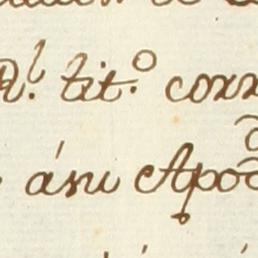 R.l tit.o corr
á su Apod